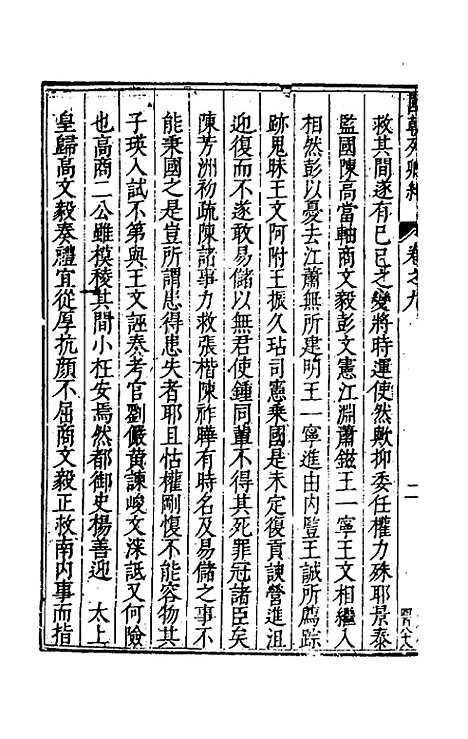 國朝列卿紀 卷之九 二
救其間遂有己巳之變將時運使然歟抑委任權力殊耶景泰
監國陳高當軸商文毅彭文憲江淵蕭鎡王一寧王文相繼入
相然彭以憂去江蕭無所建明王一寧進由內監王誠所薦踪
跡鬼昧王文阿附王振久玷司憲乘國是未定復貢諛營進沮
迎復而不遂敢易儲以無君使鍾同輩不得其死罪冠諸臣矣
陳芳洲初疏陳諸事力救張楷陳祚曄有時名及易儲之事不
能乘國之是豈所謂患得患失者耶且怙權剛愎不能容物其
子瑛入試不第與王文誣奏考官劉儼黃諫峻文深詆又何險
也高商二公雖模稜其間小枉安焉然都御史楊善迎 太上
皇歸高文毅奏禮宜從厚抗顏不屈商文毅正救南內事而指